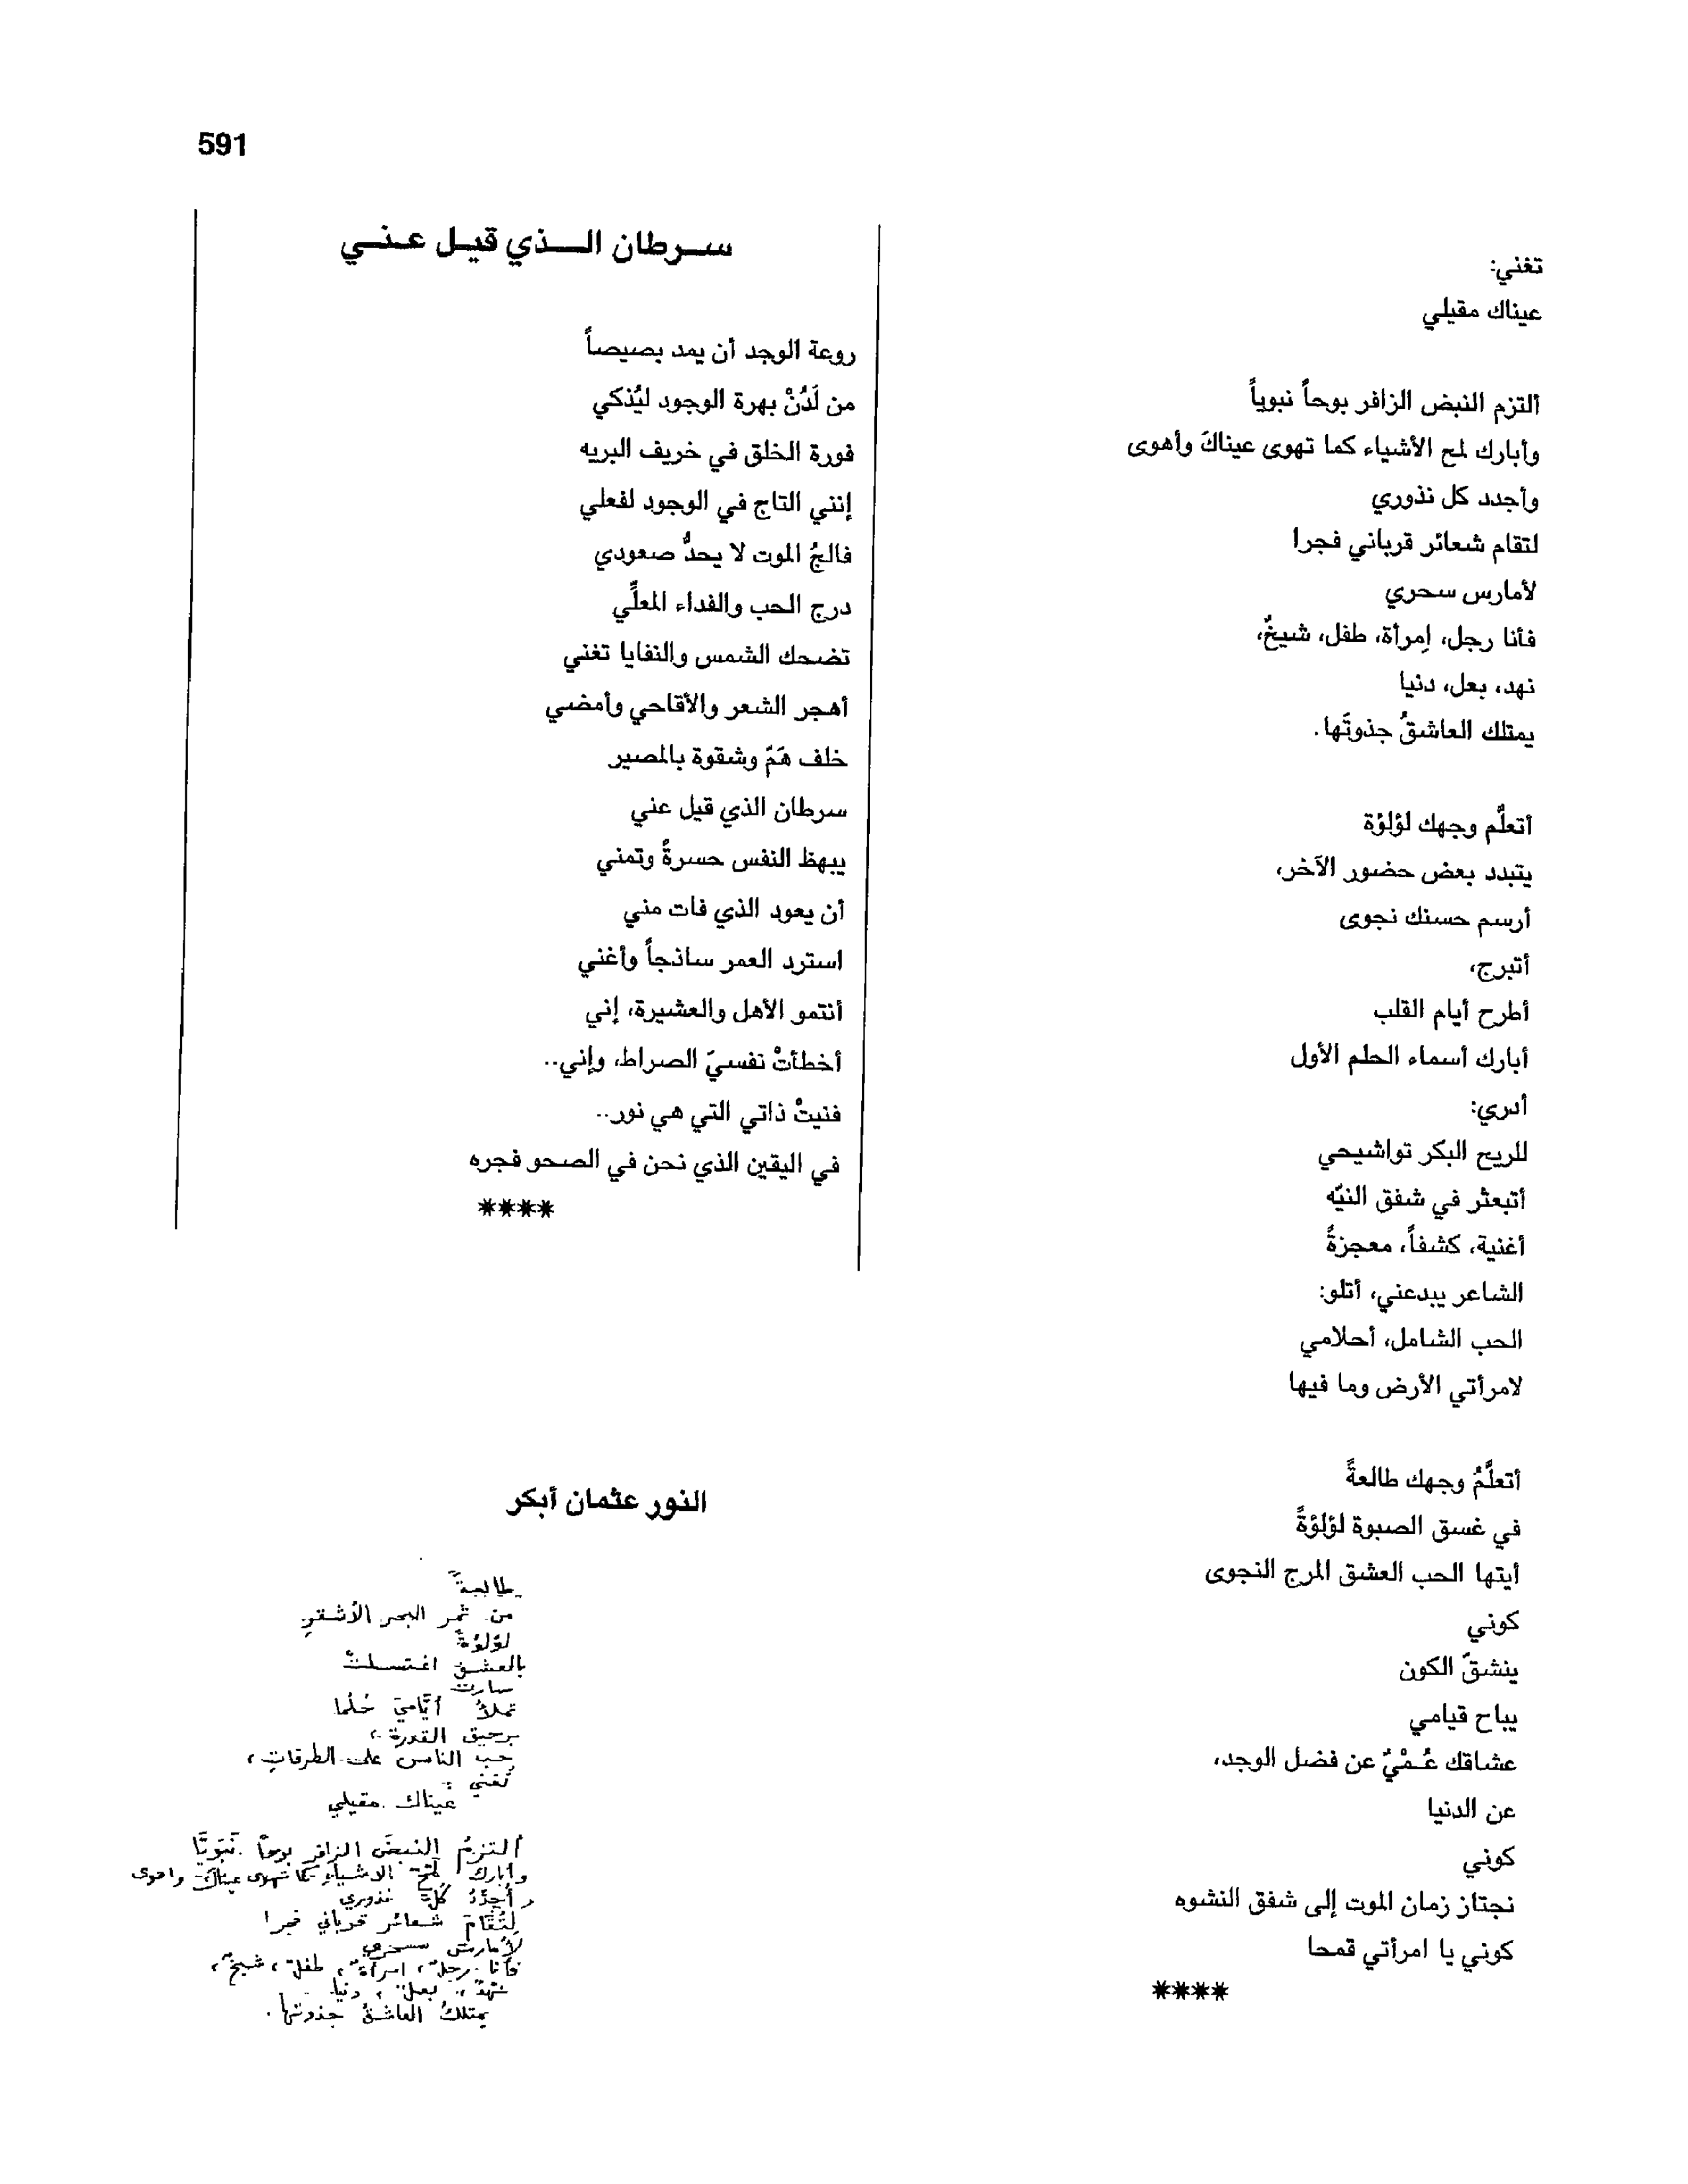 591
تغني:
عيناك مقيلي
ألتزم النبض الزافر بوحاً نبوياً
وأبارك لمح الأشياء كما تهوى عيناكَ وأهوى
وأجدد كل نذوري
لتقام شعائر قرباني فجرا
لأمارس سحري
فأنا رجل، إمرأة، طفل، شيخٌ،
نهد، بعل، دنيا
يمتلك العاشقُ جذوتَها.
أتعلَّم وجهك لؤلؤة
يتبدد بعض حضور الآخر،
أرسم حسنك نجوى
أتبرج،
أطرح أيام القلب
أبارك أسماء الحلم الأول
أدري:
للريح البكر تواشيحي
أتبعثر في شفق النيّه
أغنية، كشفاً، معجزةً
الشاعر يبدعني، أتلو:
الحب الشامل، أحلامي
لامرأتي الأرض وما فيها
أتعلَّمُ وجهك طالعةً
في غسق الصبوة لؤلؤةً
أيتها الحب العشق المرج النجوى
كوني
ينشقّ الكون
يباح قيامي
عشاقك عُـمْيٌ عن فضل الوجد،
عن الدنيا
كوني
نجتاز زمان الموت إلى شفق النشوه
كوني يا امرأتي قمحا
****
ســرطان الـــذي قيـل عـنــي
روعة الوجد أن يمد بصيصاً
من لَدُنْ بهرة الوجود ليُذكي
فورة الخلق في خريف البريه
إنني التاج في الوجود لفعلي
فالجُ الموت لا يحدُّ صعودي
درج الحب والفداء المعلِّي
تضحك الشمس والنفايا تغني
أهجر الشعر والأقاحي وأمضي
خلف هَمّ وشقوة بالمصير
سرطان الذي قيل عني
يبهظ النفس حسرةً وتمني
أن يعود الذي فات مني
استرد العمر ساذجاً وأغني
أنتمو الأهل والعشيرة، إني
أخطأتْ نفسيَ الصراط، وإني..
فنيتْ ذاتي التي هي نور..
في اليقين الذي نحن في الصحو فجره
****
النور عثمان أبكر
طالعةً
من ثمر البحر الأشقرِ
لؤلؤةً
بالعشق اغتسلتْ
سارت
تملأُ أيّاميَ حُلُما
برحيق القدرة،
حب الناس على الطرقاتِ،
تغني:
عيناك مقيلي
ألتزمُ النبضَ الزافر بوحاً نبَويّا
وأبارك لمْحَ الاشياءِ كما تهوى عيناكَ واهوى
وأُجدّدُ كلَّ نذوري
لِتُقَامَ شعائر قرباني فجرا
لأمارس سحري
فأنا رجلٌ، امرأةٌ، طفلٌ، شيخٌ،
نهدٌ، بعلٌ، دنيا
يمتلكُ العاشقُ جذوتها.